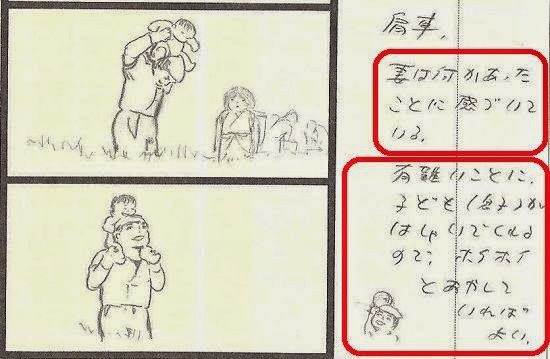 肩車。
妻は何かあった
ことに感づいて
いる。
有難いことに、
子ども(息子)が
はしゃいでくれる
ので、ホイホイ
とあやして
いれば
よい。